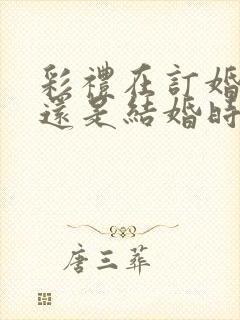 彩禮在訂婚
還是結婚時
唐三葬